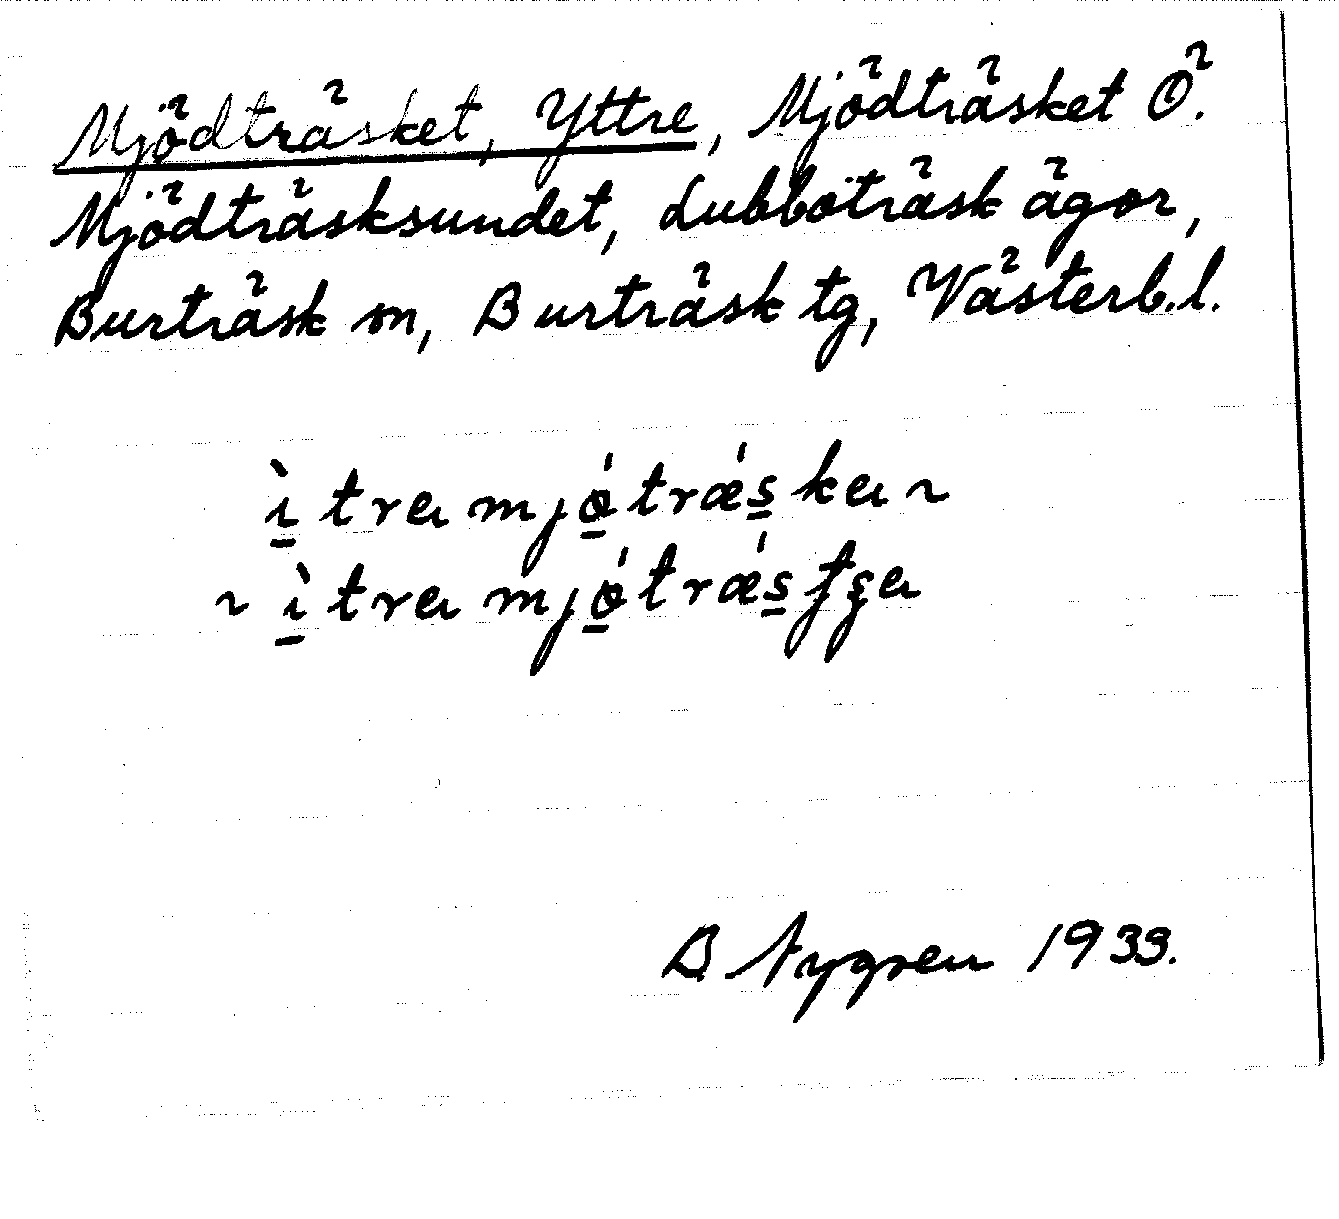 Mjödträsket, Yttre, Mjödträsket Ö.
Mjödträsksundet, Lubboträsk ägor,
Burträsk sn, Burträsk tg, Västerb.l.
ı̱̀trɐ mjǿ̱trǽs̱kɐ ~
~ ı̱̀trɐ mjǿ̱trǽs̱ʈʂɐ
B Nygren 1933.